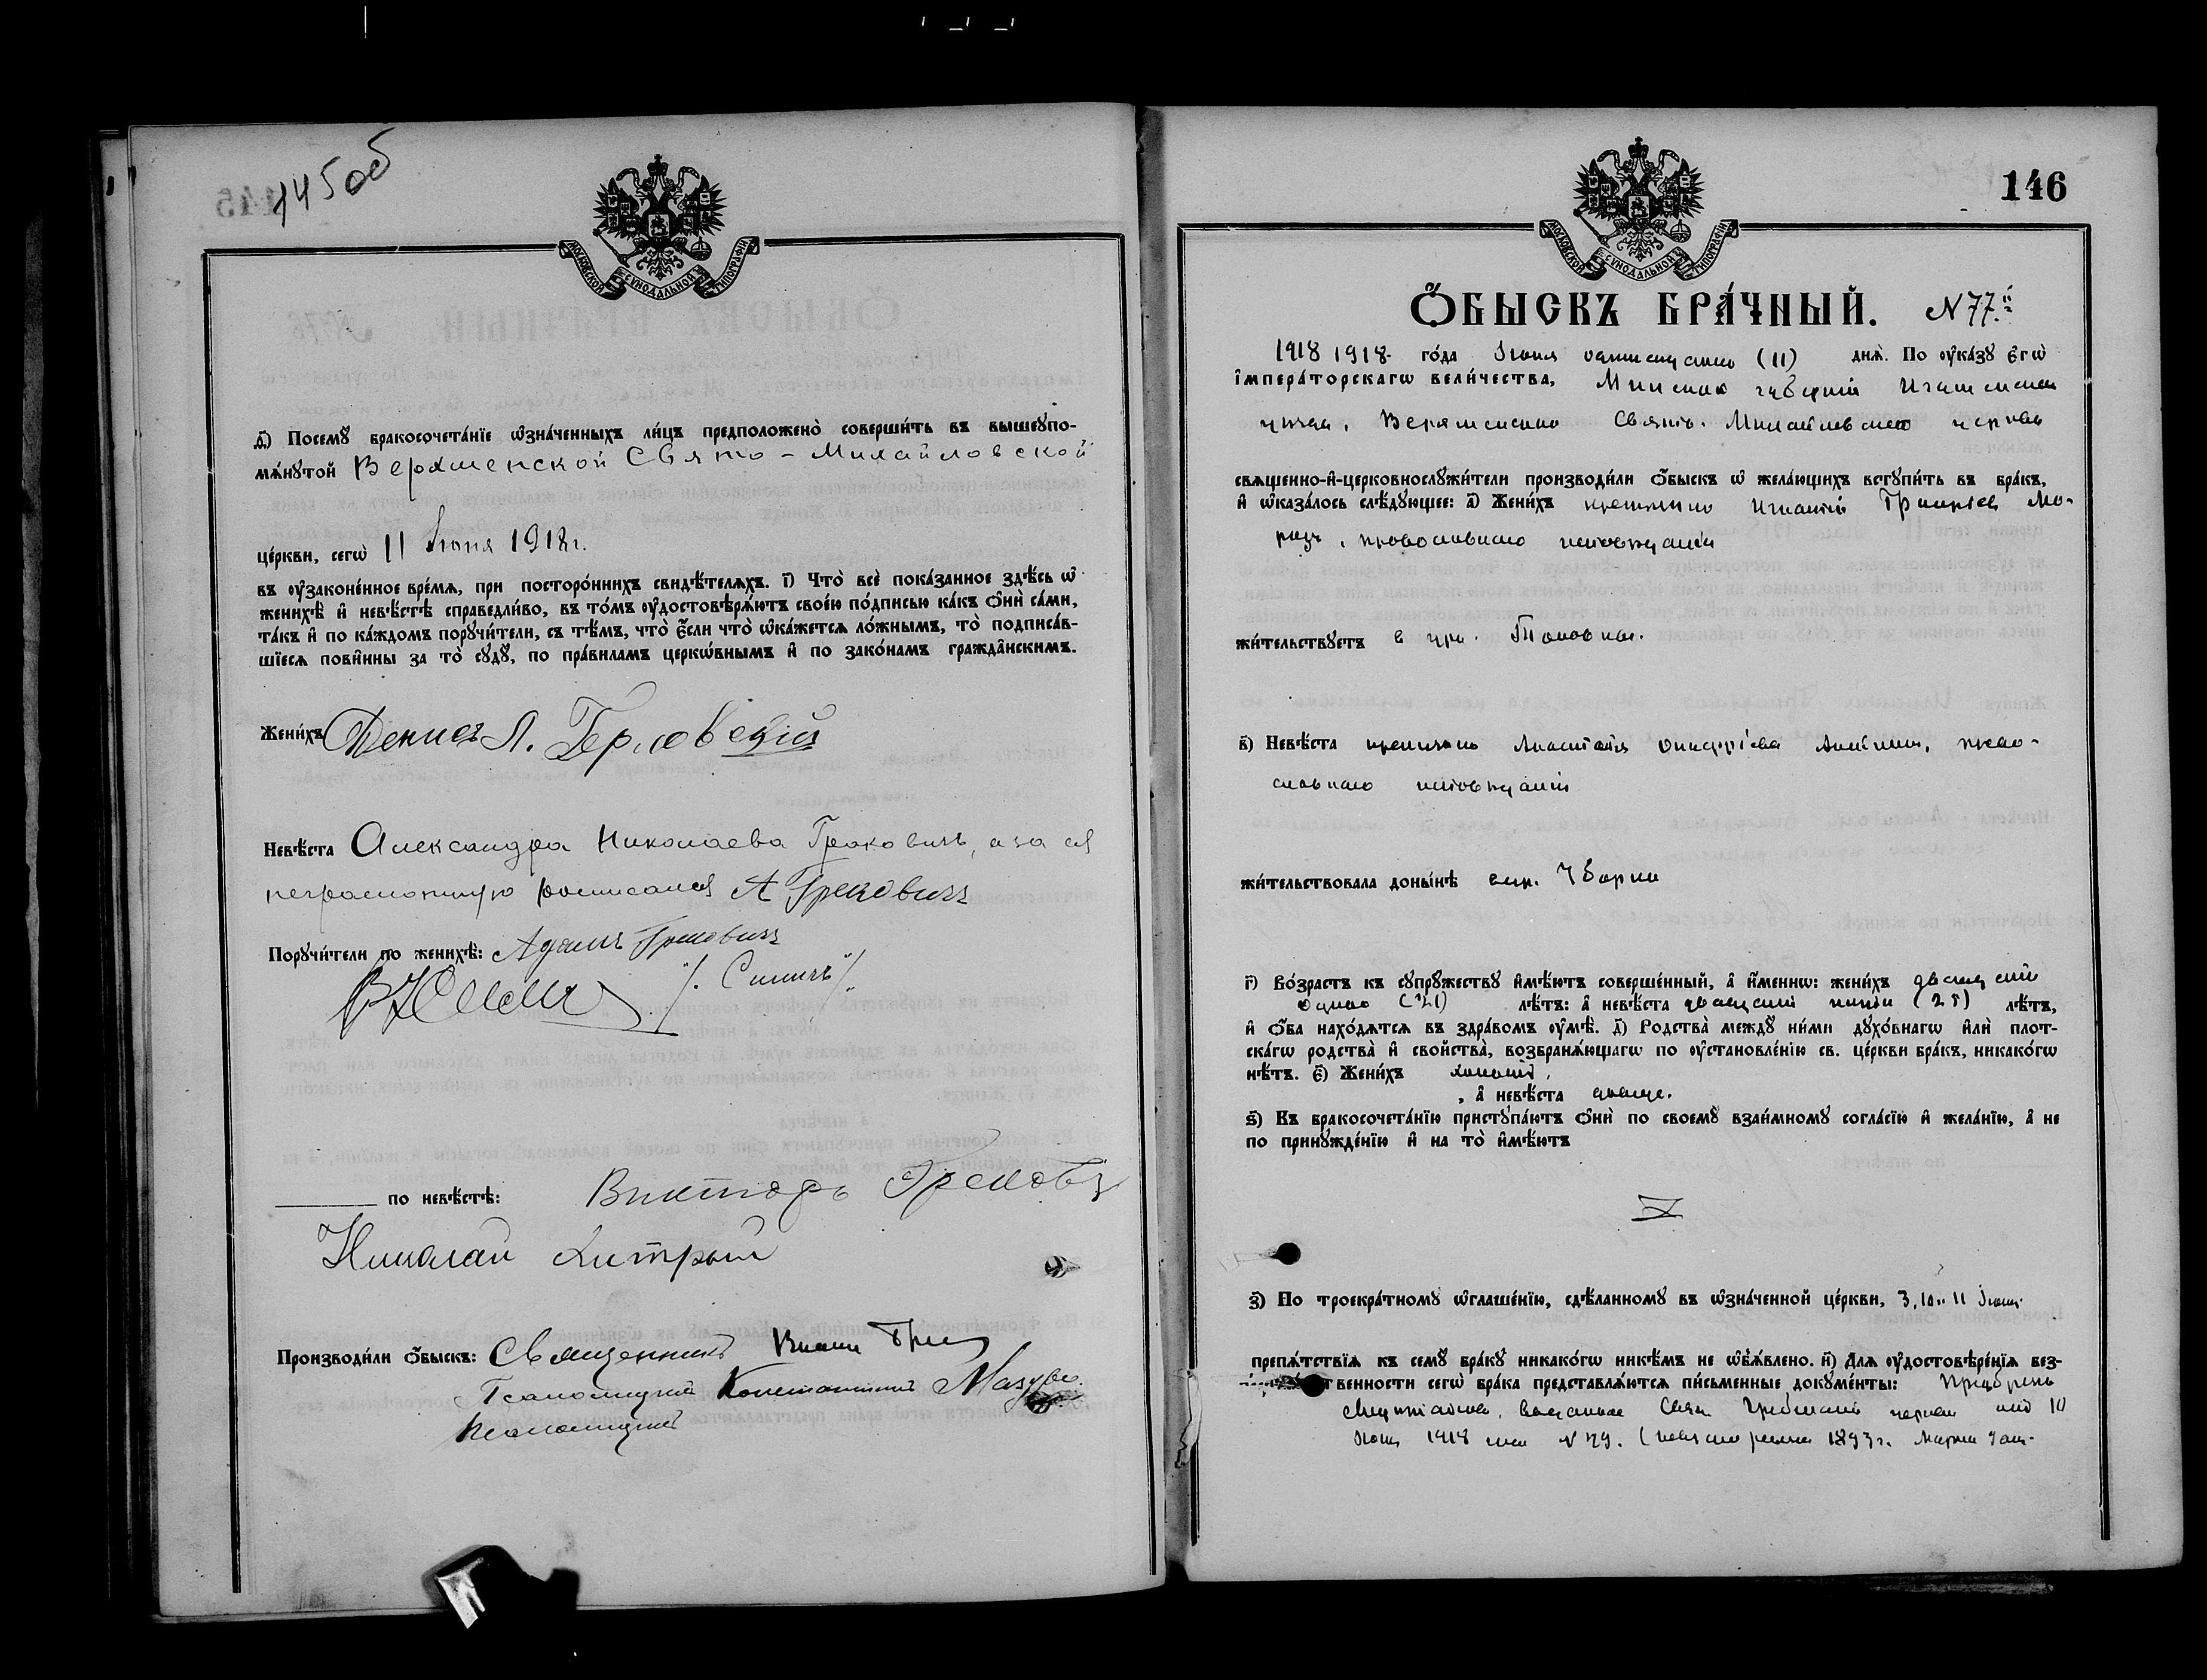 145об
МОСКОВСКОЙ СѴНОДАЛЬНОЙ ТИПОГРАФІИ
д҃) Посемꙋ̀ бракосочета́нїе ѡ҆зна́ченныхъ ли́цъ предположено̀ соверши́ть въ вышеꙋпо-
мѧ́нꙋтой Верхменской Свято-Михайловской
це́ркви, сегѡ̀ 11 Іюня 1918г.
въ ᲂу҆законе́нное вре́мѧ, при посторо́ннихъ свидѣ́телѧхъ. і҃) Что̀ всѐ пока́занное здѣ́сь ѡ҆
женихѣ̀ и҆ невѣ́стѣ справедли́во, въ то́мъ ᲂу҆достовѣрѧ́ютъ свое́ю по́дписью ка́къ ѻ҆нѝ са́ми,
та́къ и҆ по ка́ждомъ порꙋчи́тели, съ тѣ́мъ, что̀ є҆́сли что̀ ѡ҆ка́жетсѧ ло́жнымъ, то̀ подписа́в-
шїесѧ пови́нны за то̀ сꙋдꙋ̀, по пра́виламъ церкѡ́внымъ и҆ по зако́намъ гражда̂нскимъ.
Жени́хъ Денисъ А.
Невѣ́ста Александра Николаева Грековичъ, а за ея
неграмотную росписался А Грековичъ
Порꙋчи́тели по женихѣ̀: Адамъ Грековичъ
по невѣ́стѣ: Викторъ
Николай Хитрый
Производи́ли ѻ҆́быскъ: Священникъ
Псаломщикъ Константинъ
Псаломщикъ
146
МОСКОВСКОЙ СѴНОДАЛЬНОЙ ТИПОГРАФІИ
Ѻ҆́БЫСКЪ БРА́ЧНЫЙ. N 77.й
1918 1918 го́да Іюня одинадцатаго (11) днѧ̀. По ᲂу҆ка́зꙋ є҆гѡ̀
і҆мпера́торскагѡ вели́чества, Минской губерніи Игуменскаго
уѣзда, Верхменской Свято-Михайловской церкви
свѧще́нно-и҆-церковнослꙋжи́тели производи́ли ѻ҆́быскъ ѡ҆ жела́ющихъ встꙋпи́ть въ бра́къ,
и҆ ѡ҆каза́лось слѣ́дꙋющее: а҃) Жени́хъ крестьянинъ Игнатій Григорьев Мо-
розъ, православнаго исповѣданія
жи́тельствꙋетъ в дер.
в҃) Невѣ́ста крестьянка Анастасія Онуфріева право-
славнаго исповѣданія
жи́тельствовала доны́нѣ
г҃) Во́зрастъ къ сꙋпрꙋ́жествꙋ и҆мѣ́ютъ соверше́нный, а҆ и҆́меннѡ: жени́хъ двадцать
одного (21) лѣ́тъ: а҆ невѣ́ста двадцати пяти (25) лѣ́тъ,
и҆ ѻ҆́ба нахо́дѧтсѧ въ здра́вомъ ᲂу҆мѣ̀. д҃) Родства̀ междꙋ̀ ни́ми дꙋхо́внагѡ и҆лѝ плот-
ска́гѡ родства̀ и҆ сво́йства̀, возбранѧ́ющагѡ по ᲂу҆становле́нїю св. це́ркви бра́къ, никако́гѡ
нѣ́тъ. є҃) Жени́хъ холостъ,
, а҆ невѣ́ста дѣвица.
ѕ҃) Къ бракосочета́нїю пристꙋпа́ютъ ѻ҆нѝ по своемꙋ̀ взаи́мномꙋ согла́сїю и҆ жела́нїю, а҆ не
по принꙋжде́нїю и҆ на то̀ и҆мѣ́ютъ
з҃) По троекра́тномꙋ ѡ҆глаше́нїю, сдѣ́ланномꙋ въ ѡ҆зна́ченной це́ркви, 3, 10 и 11 Іюня
препѧ́тствїѧ къ семꙋ̀ бра́кꙋ никако́гѡ никѣ́мъ не ѡ҆б̾ѧ́влено. и҃) Длѧ ᲂу҆достовѣре́нїѧ без-
твенности сегѡ̀ бра́ка представлѧ́ютсѧ пи́сьменные докꙋме́нты: Предбрачн.
свидѣтельство, выданное церкви от 10
Іюня 1918 года N 29. 1893 г. Марта